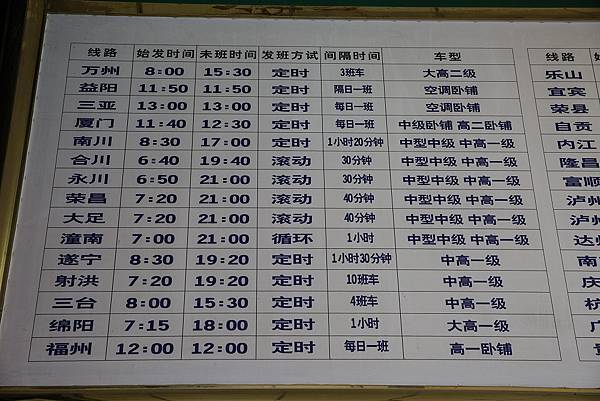 线路 始发时间 未班时间 发班方试 间隔时间 车型
万州 8:00 15:30 定时 3班车 大高二级 乐山
益阳 11:50 11:50 定时 隔日一班 空调卧铺 宜宾
三亚 13:00 13:00 定时 每日一班 空调卧铺 荣县
厦门 11:40 12:30 定时 每日一班 中级卧铺 高二卧铺 自贡
南川 8:30 17:00 定时 1小时20分钟 中型中级 中高一级 内江
合川 6:40 19:40 滚动 30分钟 中型中级 中高一级 隆昌
永川 6:50 21:00 滚动 30分钟 中型中级 中高一级 富顺
荣昌 7:20 21:00 滚动 40分钟 中型中级 中高一级 泸州
大足 7:20 21:00 滚动 40分钟 中型中级 中高一级 泸
潼南 7:00 21:00 循环 1小时 中型中级 中高一级 达
遂宁 8:30 19:20 定时 1小时30分钟 中高一级 南
射洪 7:20 19:20 定时 10班车 中高一级
三台 8:00 15:30 定时 4班车 中高一级 杭
绵阳 7:15 18:00 定时 1小时 大高一级 广
福州 12:00 12:00 定时 每日一班 高一卧铺